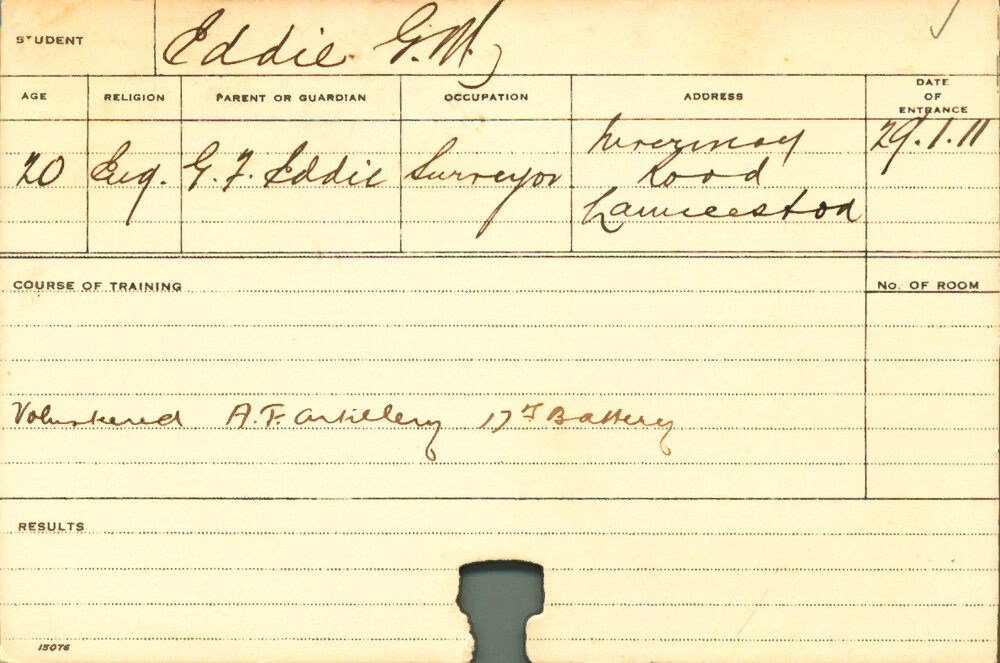 STUDENT Eddie G.M.
AGE RELIGION PARENT OR GUARDIAN OCCUPATION ADDRESS DATE OF ENTRANCE
20 Eng. G. F. Eddie Surveyor Invermay 29.1.11
Road
Launceston
COURSE OF TRAINING No. OF ROOM
Volunteered A.F. Artillery 17 Battery
RESULTS
15076